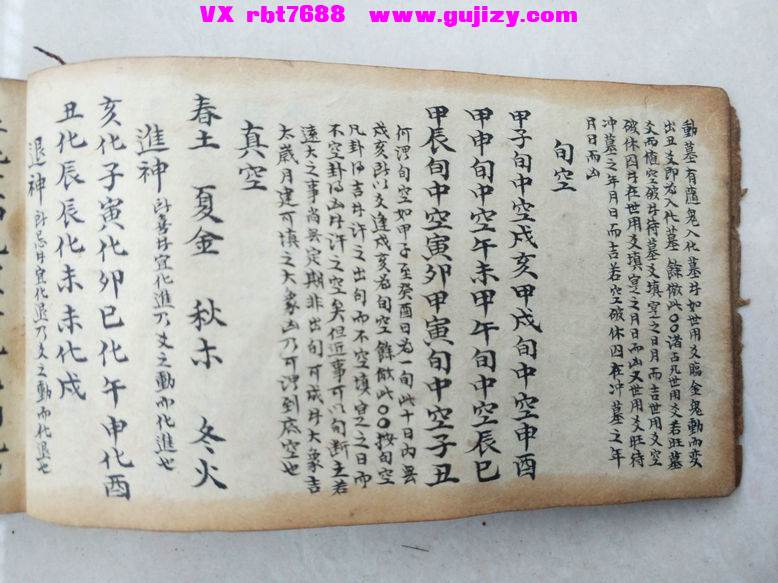 VX rbt7688 www.gujizy.com
動墓有隨鬼入化墓者如世用爻臨金鬼動而变
出丑爻即为入化墓餘倣此〇〇諸占凡世用爻若旺墓
爻而值空破者待墓爻填实之日月而吉世用爻空
破休囚者在世用爻填实之月日而凶又世用爻旺待
冲墓之年月日而吉若空破休囚在冲墓之年
月日而凶
旬空
甲子旬中空戌亥甲戌旬中空申酉
甲申旬中空午未甲午旬中空辰巳
甲辰旬中空寅卯甲寅旬中空子丑
何谓旬空如甲子至癸酉日为一旬此十日内無
戌亥所以爻逢戌亥为旬空餘倣此〇〇按旬空
凡卦得吉者许之出旬而不空填实之日而
不空卦得凶者许之空矣但近事可以旬断之若
遠大之事尚無定期非出旬可成者大象吉
太歲月建可填之大象凶乃可谓到底空也
真空
春土 夏金 秋木 冬火
進神 卦喜者宜化進乃爻之動而化進也
亥化子寅化卯巳化午申化酉
丑化辰辰化未未化戌
退神 卦忌者宜化退乃爻之動而化退也